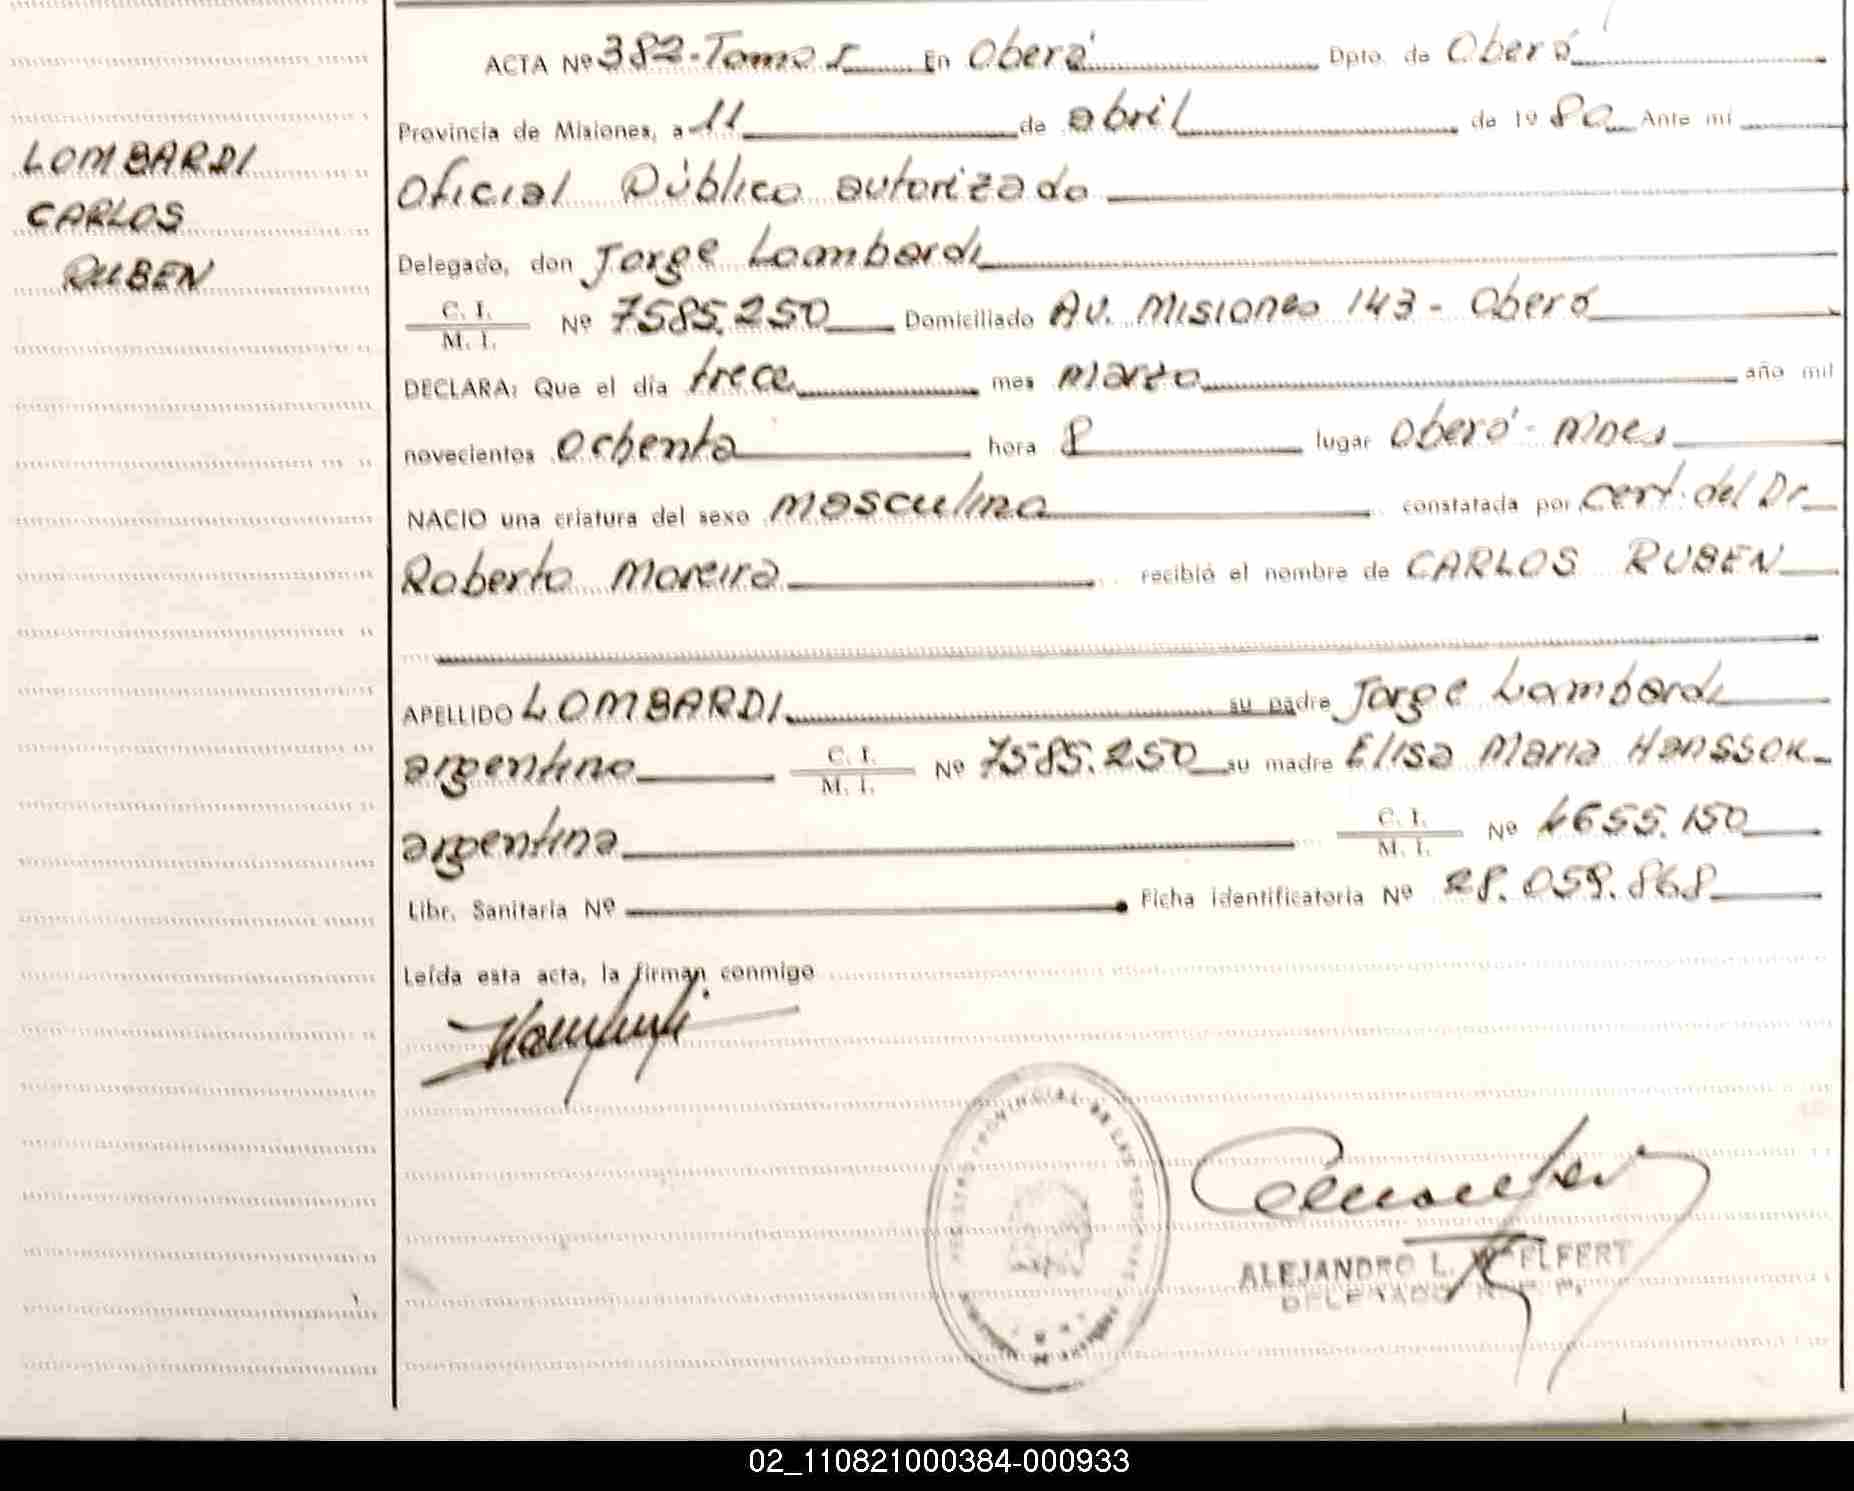 ACTA Nº 382-Tomo I En Oberá Dpto. de Oberá
Provincia de Misiones, a 11 de abril de 1980 Ante mí
LOMBARDI
CARLOS
RUBEN
Oficial Público autorizado
Delegado, don Jorge Lombardi
C. I.
M. I. Nº 7585.250 Domiciliado Av. Misiones 143 - Oberá
DECLARA: Que el día trece mes marzo año mil
novecientos ochenta hora 8 lugar Oberá - Mnes
NACIO una criatura del sexo masculino constatada por cert. del Dr.
Roberto Moreira recibió el nombre de CARLOS RUBEN
APELLIDO LOMBARDI su padre Jorge Lombardi
argentino C. I.
M. I. Nº 7585.250 su madre Elisa Maria Hanssok
argentina C. I.
M. I. Nº 4655.150
Libr. Sanitaria Nº Ficha identificatoria Nº 28.059.868
Leída esta acta, la firman conmigo
PROVINCIAL DE LAS PERSONAS
ALEJANDRO L. WELFERT
DELEGADO
02_110821000384-000933